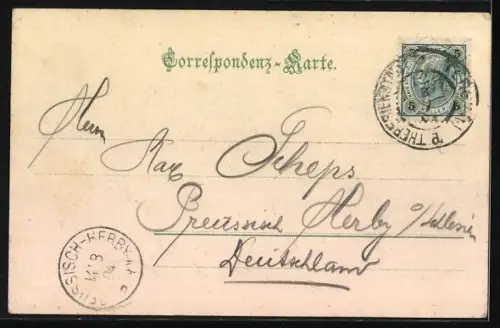 Correspondenz-Karte.
5 5
THERESIENSTADT
Herrn
Max Scheps
Preussisch Herby o/Schlesien
Deutschland
PREUSSISCH-HERBY
14 3
04